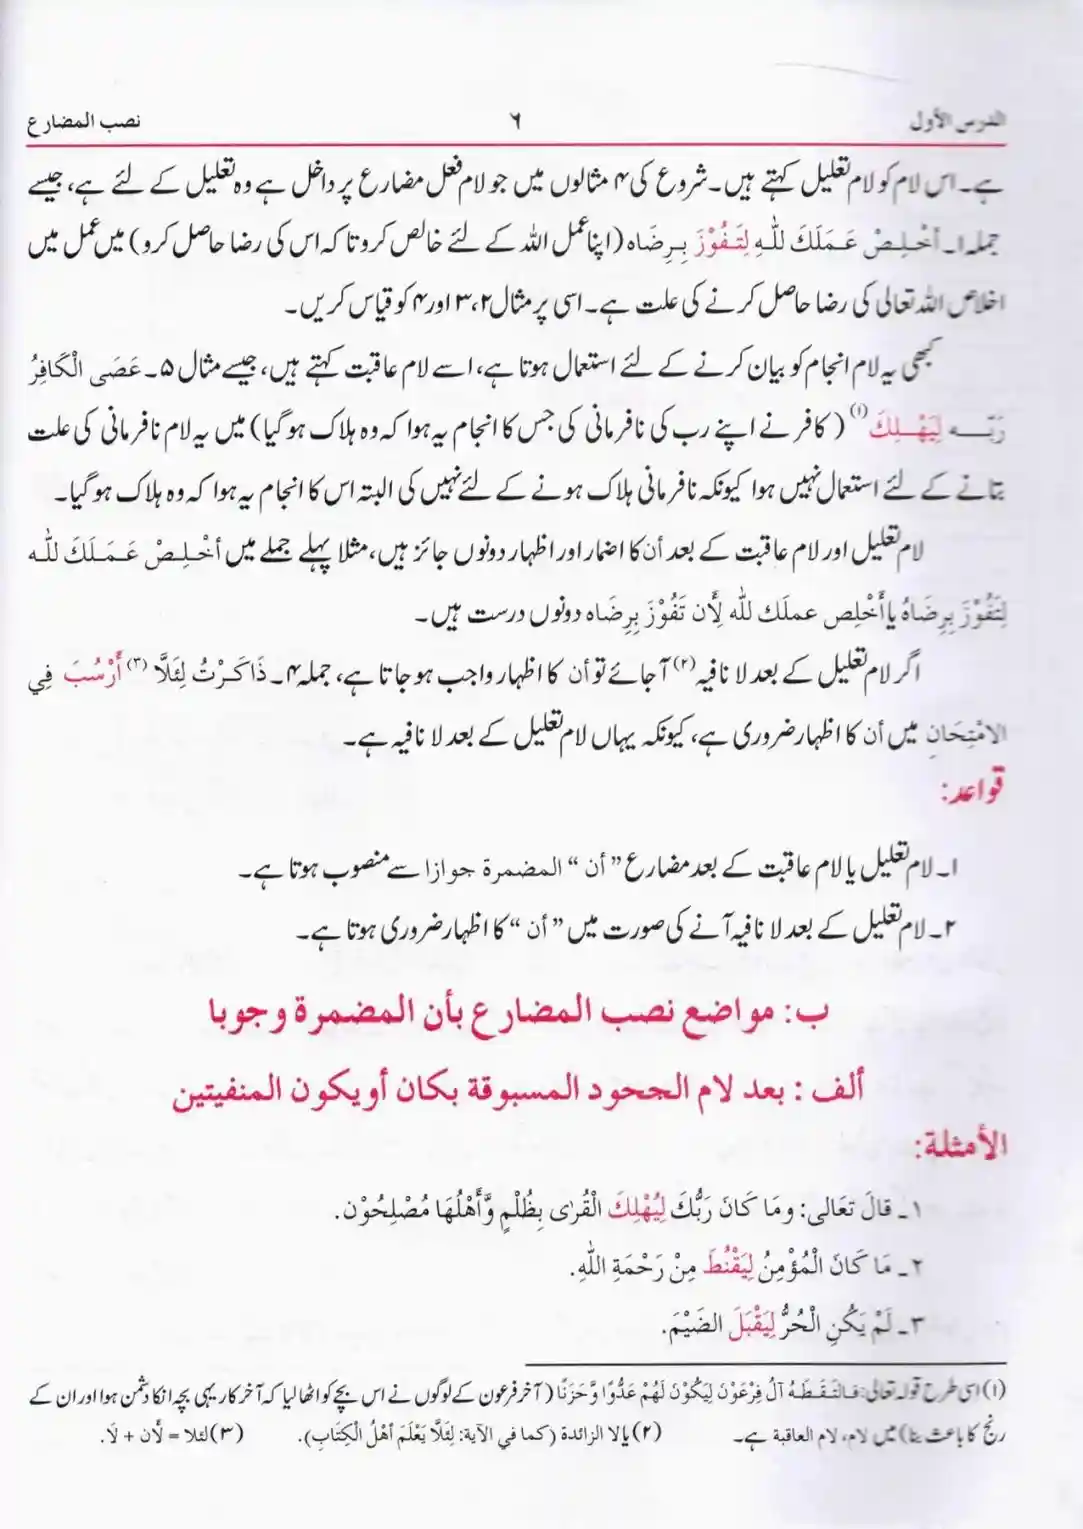 الدرس الأول ٦ نصب المضارع
ہے۔ اس لام کو لام تعلیل کہتے ہیں۔ شروع کی ۴ مثالوں میں جو لام فعل مضارع پر داخل ہے وہ تعلیل کے لئے ہے، جیسے
جملہ ۱۔ أخْلِصْ عَمَلَكَ للّٰہِ لِتَفُوْزَ بِرِضَاه (اپنا عمل اللہ کے لئے خالص کرو تا کہ اس کی رضا حاصل کرو) میں عمل میں
اخلاص اللہ تعالی کی رضا حاصل کرنے کی علت ہے۔ اسی پر مثال ۲، ۳ اور ۴ کو قیاس کریں۔
کبھی یہ لام انجام کو بیان کرنے کے لئے استعمال ہوتا ہے، اسے لام عاقبت کہتے ہیں، جیسے مثال ۵۔ عَصَى الْكَافِرُ
رَبَّہ لِيَهْلِكَ (۱) (کافر نے اپنے رب کی نافرمانی کی جس کا انجام یہ ہوا کہ وہ ہلاک ہو گیا) میں یہ لام نافرمانی کی علت
بتانے کے لئے استعمال نہیں ہوا کیونکہ نافرمانی ہلاک ہونے کے لئے نہیں کی البتہ اس کا انجام یہ ہوا کہ وہ ہلاک ہو گیا۔
لام تعلیل اور لام عاقبت کے بعد أن کا اضمار اور اظہار دونوں جائز ہیں، مثلا پہلے جملے میں أخْلِصْ عَمَلَكَ للّٰه
لِتَفُوْزَ بِرِضَاهُ یا أَخْلِص عملَك للّٰه لِأَن تَفُوْزَ بِرِضَاه دونوں درست ہیں۔
اگر لام تعلیل کے بعد لا نافیہ (۲) آ جائے تو أن کا اظہار واجب ہو جاتا ہے، جملہ ۴۔ ذَاكَرْتُ لِئَلَّا (۳) أَرْسُبَ فِي
الامْتِحَانِ میں أن کا اظہار ضروری ہے، کیونکہ یہاں لام تعلیل کے بعد لا نافیہ ہے۔
قواعد:
۱۔ لام تعلیل یا لام عاقبت کے بعد مضارع ”أن“ المضمرة جوازا سے منصوب ہوتا ہے۔
۲۔ لام تعلیل کے بعد لا نافیہ آنے کی صورت میں ”أن“ کا اظہار ضروری ہوتا ہے۔
ب: مواضع نصب المضارع بأن المضمرة وجوبا
ألف : بعد لام الجحود المسبوقة بكان أو يكون المنفيتين
الأمثلة:
۱۔ قالَ تعَالى: ومَا كَانَ رَبُّكَ لِيُهْلِكَ الْقُرٰى بِظُلْمٍ وَّأَهْلُهَا مُصْلِحُوْن.
۲۔ مَا كَانَ الْمُؤْمِنُ لِيَقْنُطَ مِنْ رَحْمَةِ اللّٰهِ.
۳۔ لَمْ يَكُنِ الْحُرُّ لِيَقْبَلَ الضَيْمَ.
(۱) اسی طرح قوله تعالى: فَالتَقَطَهُ آلُ فِرْعَوْنَ لِيَكُوْنَ لَهُمْ عَدُّوًا وَّحَزَنًا (آخر فرعون کے لوگوں نے اس بچے کو اٹھا لیا کہ آخر کار یہی بچہ انکا دشمن ہوا اور ان کے
رنج کا باعث بنا) میں لام، لام العاقبة ہے۔ (۲) یا لا الزائدة (كما في الآية: لِئَلَّا يَعْلَمَ أهْلُ الْكِتَابِ). (۳) لئلا = لأن + لَا.